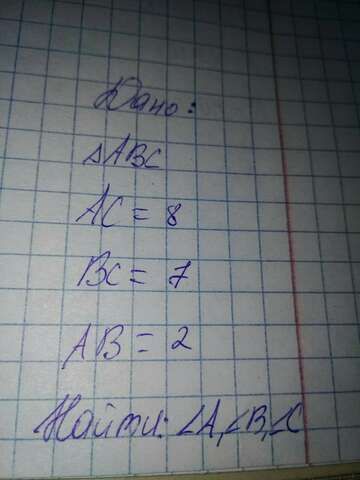 Дано:
△ABC
AC = 8
BC = 7
AB = 2
Найти: ∠A, ∠B, ∠C